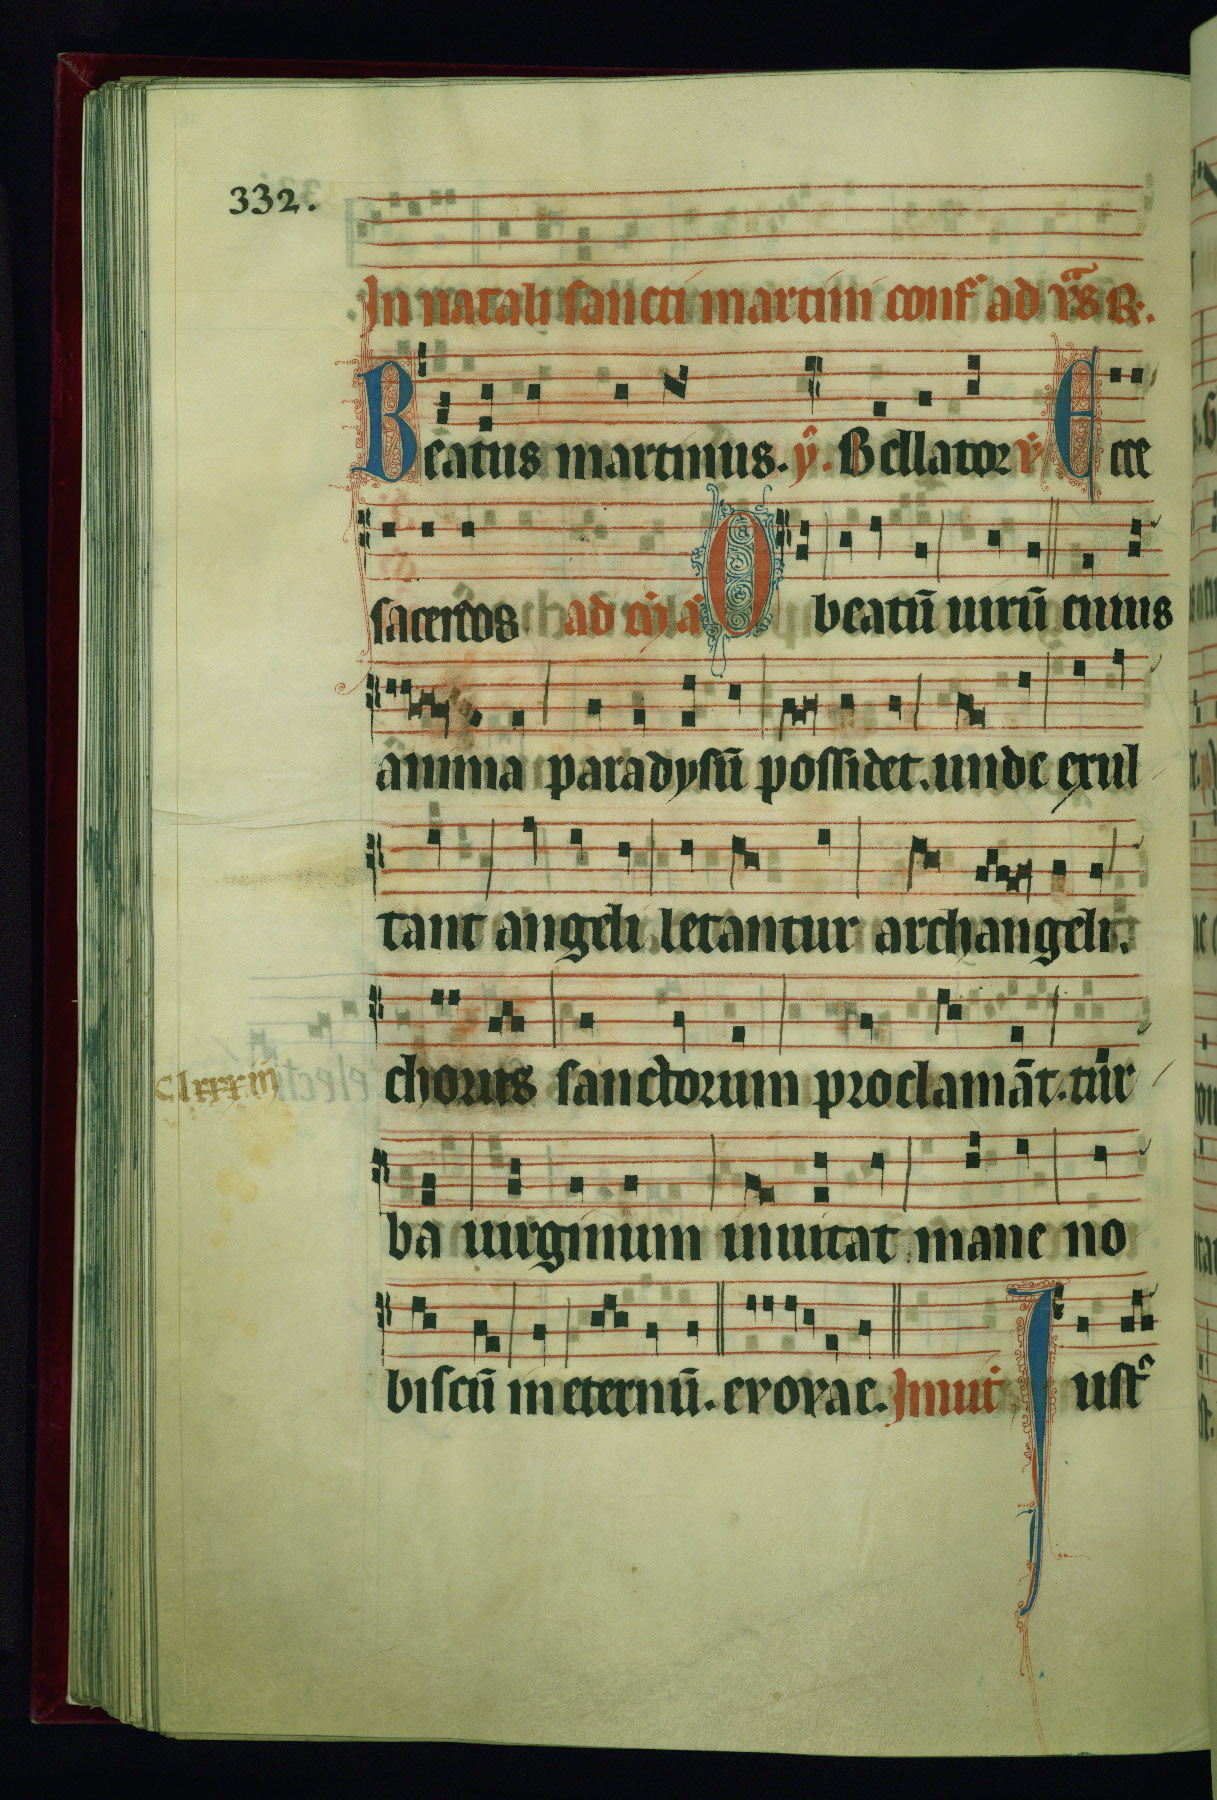 332.
In natali sancti martini conf' ad vꝰs R.
Beatus martinus. ẏ. Bellator r̄ Ecce
sacerdos ad mͣ a O beatū uirū cuius
anima paradysū possidet. unde exul
tant angeli letantur archangeli.
chorus sanctorum proclamāt. tur
clxxxiii
ba uirginum inuitat mane no
biscū in eternū. evovae. Inuit' Iust'